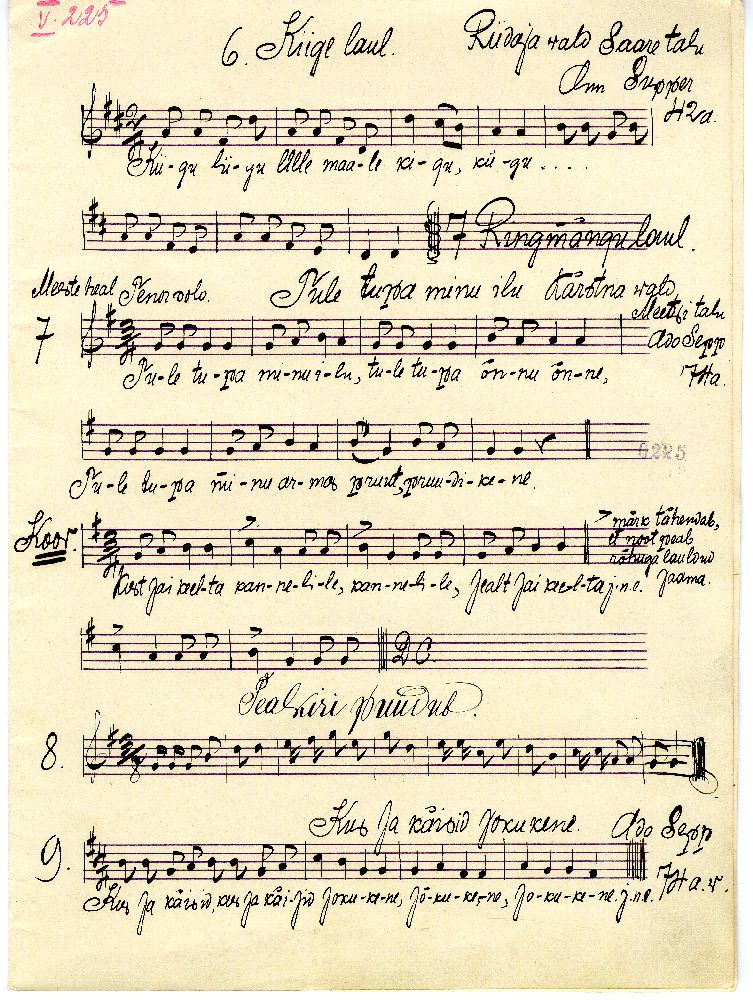 V. 225
6. Kiige laul.
Riidaja wald Saare talu
Ann Supper
42 a.
Kii-gu lii-gu Ulle maa-le ki-gu, kii-gu ....
7 Ringmängu laul.
Meeste heal Tenor solo.
Tule tupa minu ilu
Kärstna wald
Meetsi talu
7
Ado Sepp
74 a.
Tu-le tu-pa mi-nu i-lu, tu-le tu-pa õn-nu õn-ne,
Tu-le tu-pa mi-nu ar-mas pruut, pruu-di-ke-ne.
6225
Koor.
> märk tähendab,
et noot peab
rõhuga lauldud
saama.
Kust sai keel-ta kan-ne-li-le, kan-ne-li-le, sealt sai keel-ta j.n.e.
D.C.
Pealkiri puudub.
8.
Kus sa käisid sokukene.
Ado Sepp
9.
74 a. v.
Kus sa käisid, kus sa käi-sid soku-ke-ne, sõ-ku-ke-ne, so-ku-ke-ne j.n.e.